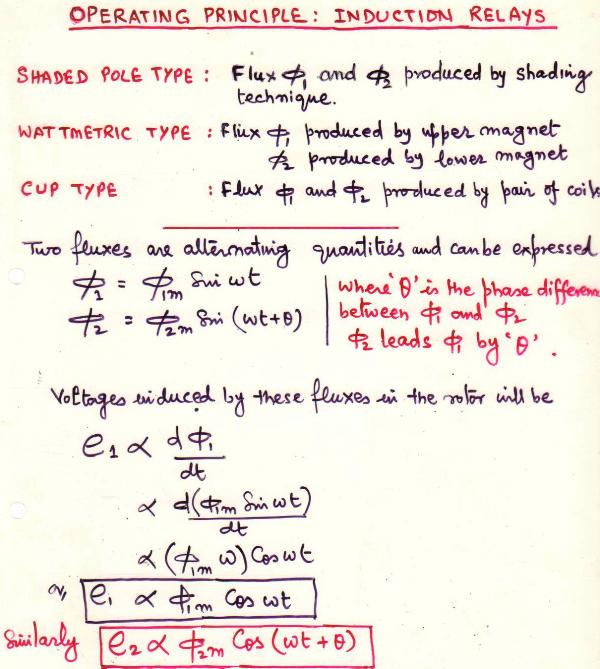 OPERATING PRINCIPLE: INDUCTION RELAYS
SHADED POLE TYPE : Flux ϕ₁ and ϕ₂ produced by shading
technique.
WATTMETRIC TYPE : Flux ϕ₁ produced by upper magnet
ϕ₂ produced by lower magnet
CUP TYPE : Flux ϕ₁ and ϕ₂ produced by pair of coils
Two fluxes are alternating quantities and can be expressed
ϕ₁ = ϕ₁ₘ Sin ωt
ϕ₂ = ϕ₂ₘ Sin (ωt+θ)
where 'θ' is the phase differen
between ϕ₁ and ϕ₂
ϕ₂ leads ϕ₁ by 'θ'.
Voltages induced by these fluxes in the rotor will be
e₁ ∝ dϕ₁
dt
∝ d(ϕ₁ₘ Sin ωt)
dt
∝ (ϕ₁ₘ ω) Cos ωt
or, e₁ ∝ ϕ₁ₘ Cos ωt
Similarly e₂ ∝ ϕ₂ₘ Cos (ωt + θ)